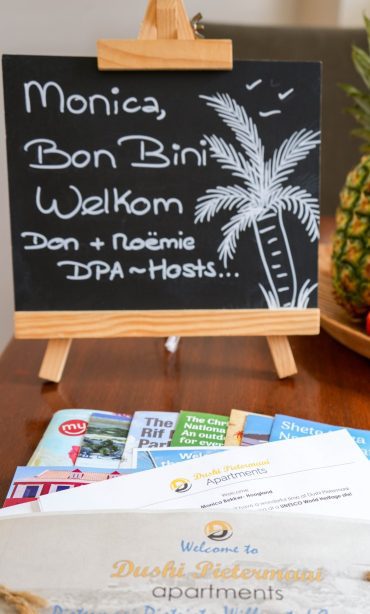 Monica,
Bon Bini
Welkom
Don + Noëmie
DPA~Hosts...
my
The
Rif
Park
The Chr
National
An outd
for ever
Sheto
Dushi Pietermaai
Apartments
Welcome
Monica Bakker- Hoogland
a wonderful time at Dushi Pietermaai
of a UNESCO World Heritage site!
Welcome to
Dushi Pietermaai
apartments